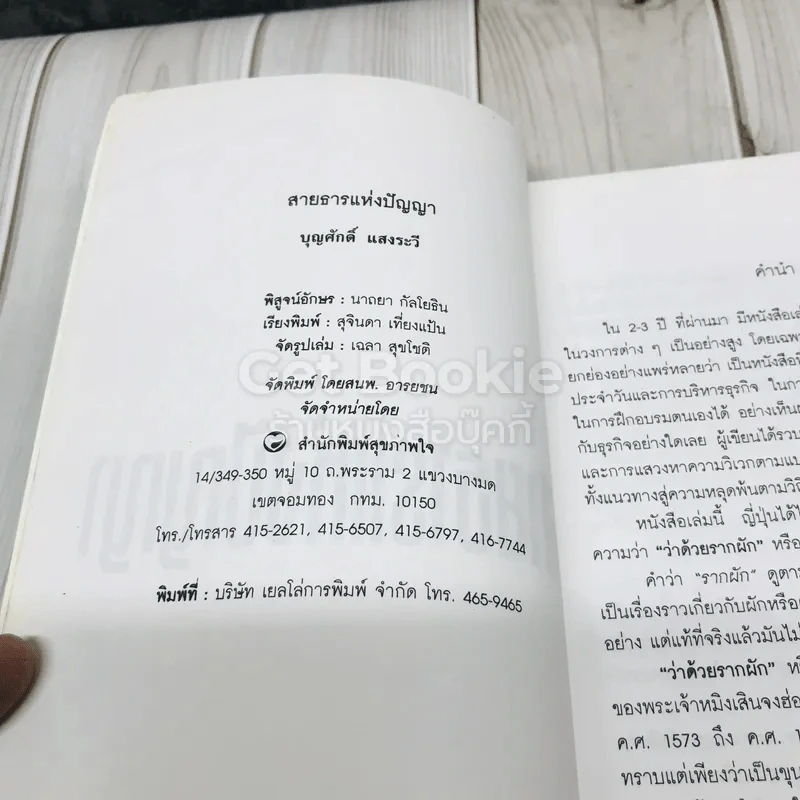 สายธารแห่งปัญญา
บุญศักดิ์ แสงระวี
พิสูจน์อักษร : นาถยา กัลโยธิน
เรียงพิมพ์ : สุจินดา เที่ยงแป้น
จัดรูปเล่ม : เฉลา สุขโชติ
จัดพิมพ์ โดยสนพ. อารยชน
จัดจำหน่ายโดย
สำนักพิมพ์สุขภาพใจ
14/349-350 หมู่ 10 ถ.พระราม 2 แขวงบางมด
เขตจอมทอง กทม. 10150
โทร./โทรสาร 415-2621, 415-6507, 415-6797, 416-7744
พิมพ์ที่ : บริษัท เยลโล่การพิมพ์ จำกัด โทร. 465-9465
Get Bookie
ร้านหนังสือบุ๊คกี้
คำนำ
ใน 2-3 ปี ที่ผ่านมา มีหนังสือเล่
ในวงการต่าง ๆ เป็นอย่างสูง โดยเฉพา
ยกย่องอย่างแพร่หลายว่า เป็นหนังสือ
ประจำวันและการบริหารธุรกิจ ในกา
ในการฝึกอบรมตนเองได้ อย่างเห็น
กับธุรกิจอย่างใดเลย ผู้เขียนได้รวบ
และการแสวงหาความวิเวกตามแบ
ทั้งแนวทางสู่ความหลุดพ้นตามวิถี
หนังสือเล่มนี้ ญี่ปุ่นได้ใ
ความว่า “ว่าด้วยรากผัก” หรือ
คำว่า “รากผัก” ดูตาม
เป็นเรื่องราวเกี่ยวกับผักหรือ
อย่าง แต่แท้ที่จริงแล้วมันไม่
“ว่าด้วยรากผัก” หรื
ของพระเจ้าหมิงเสินจงฮ่อ
ค.ศ. 1573 ถึง ค.ศ. 1
ทราบแต่เพียงว่าเป็นขุน